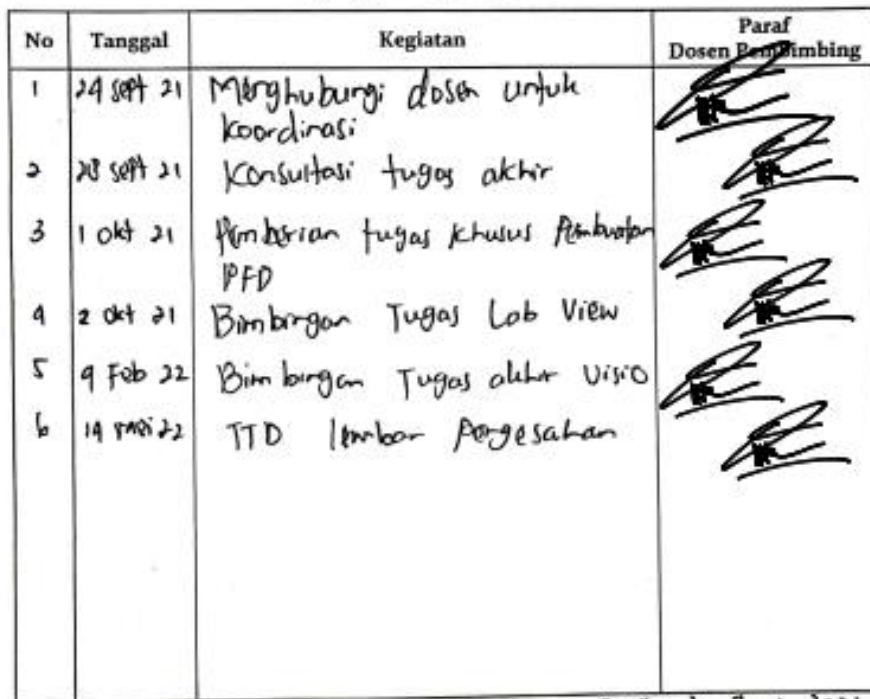 No Tanggal Kegiatan Paraf
Dosen Pembimbing
1 24 sept 21 Menghubungi dosen untuk
koordinasi
2 28 sept 21 Konsultasi tugas akhir
3 1 okt 21 Pemberian tugas khusus Pembuatan
PFD
4 2 okt 21 Bimbingan Tugas Lab View
5 9 Feb 22 Bimbingan Tugas akhir Visio
6 14 mei 22 TTD lembar Pengesahan